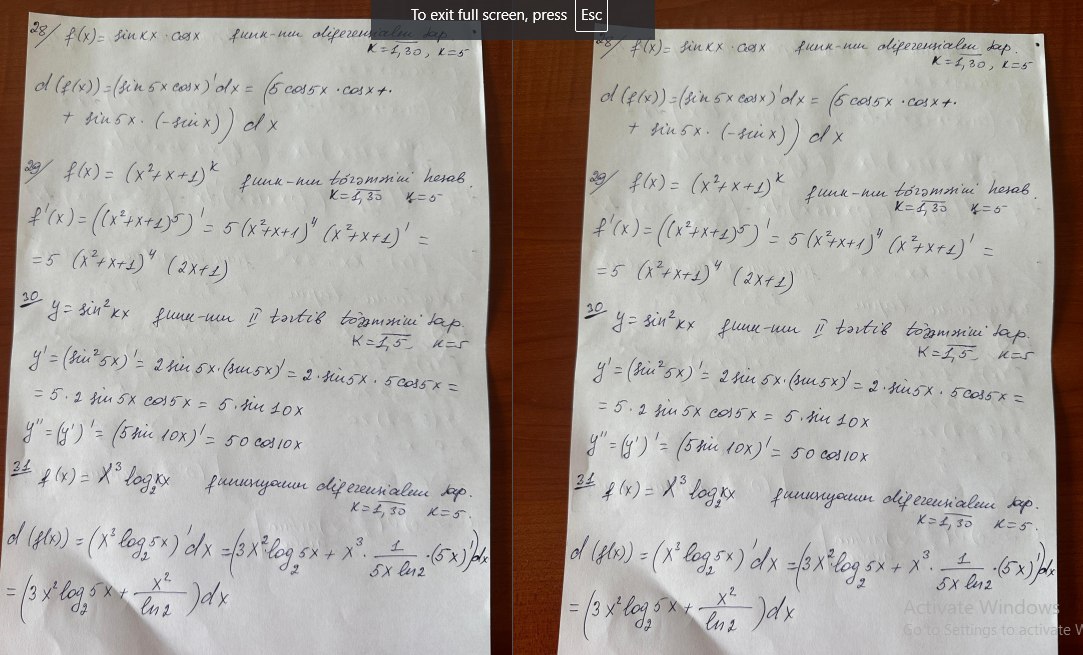 To exit full screen, press Esc
28/ f(x)= sin kx · cosx funk-nın diferensialın tap.
k=1,30, k=5
d(f(x))=(sin5x cosx)'dx = (5cos5x·cosx+
+ sin5x·(-sinx)) dx
29/ f(x)= (x²+x+1)^k funk-nın törəməsini hesab.
k=1,30 k=5
f'(x)=((x²+x+1)⁵)'= 5(x²+x+1)⁴ (x²+x+1)' =
=5 (x²+x+1)⁴ (2x+1)
30 y= sin²kx funk-nın II tərtib törəməsini tap.
k=1,5, k=5
y'=(sin²5x)'= 2sin5x·(sin5x)'= 2·sin5x·5cos5x =
= 5·2 sin5x cos5x = 5·sin10x
y''=(y')'= (5sin10x)'= 50cos10x
31 f(x)= x³log₂kx funksiyanın diferensialın tap.
k=1,30 k=5.
d(f(x))=(x³log₂5x)'dx =(3x²log₂5x + x³· 1/(5x ln2) ·(5x)')dx
= (3x²log₂5x + x²/ln2)dx
28/ f(x)= sin kx · cosx funk-nın diferensialın tap.
k=1,30, k=5
d(f(x))=(sin5x cosx)'dx = (5cos5x·cosx+
+ sin5x·(-sinx)) dx
29/ f(x)= (x²+x+1)^k funk-nın törəməsini hesab.
k=1,30 k=5
f'(x)=((x²+x+1)⁵)'= 5(x²+x+1)⁴ (x²+x+1)' =
=5 (x²+x+1)⁴ (2x+1)
30 y= sin²kx funk-nın II tərtib törəməsini tap.
k=1,5, k=5
y'=(sin²5x)'= 2sin5x·(sin5x)'= 2·sin5x·5cos5x =
= 5·2 sin5x cos5x = 5·sin10x
y''=(y')'= (5sin10x)'= 50cos10x
31 f(x)= x³log₂kx funksiyanın diferensialın tap.
k=1,30 k=5.
d(f(x))=(x³log₂5x)'dx =(3x²log₂5x + x³· 1/(5x ln2) ·(5x)')dx
= (3x²log₂5x + x²/ln2)dx
Activate Windows
Go to Settings to activate W